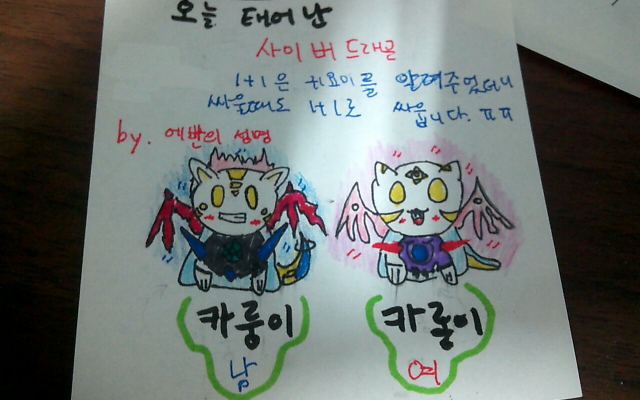 오늘 태어난
사이버드래곤
1+1은 귀요미를 알려주었더니
싸울때도 1+1로 싸웁니다. ㅠㅠ
by. 에반의 설명
카룽이 카롱이
남 여